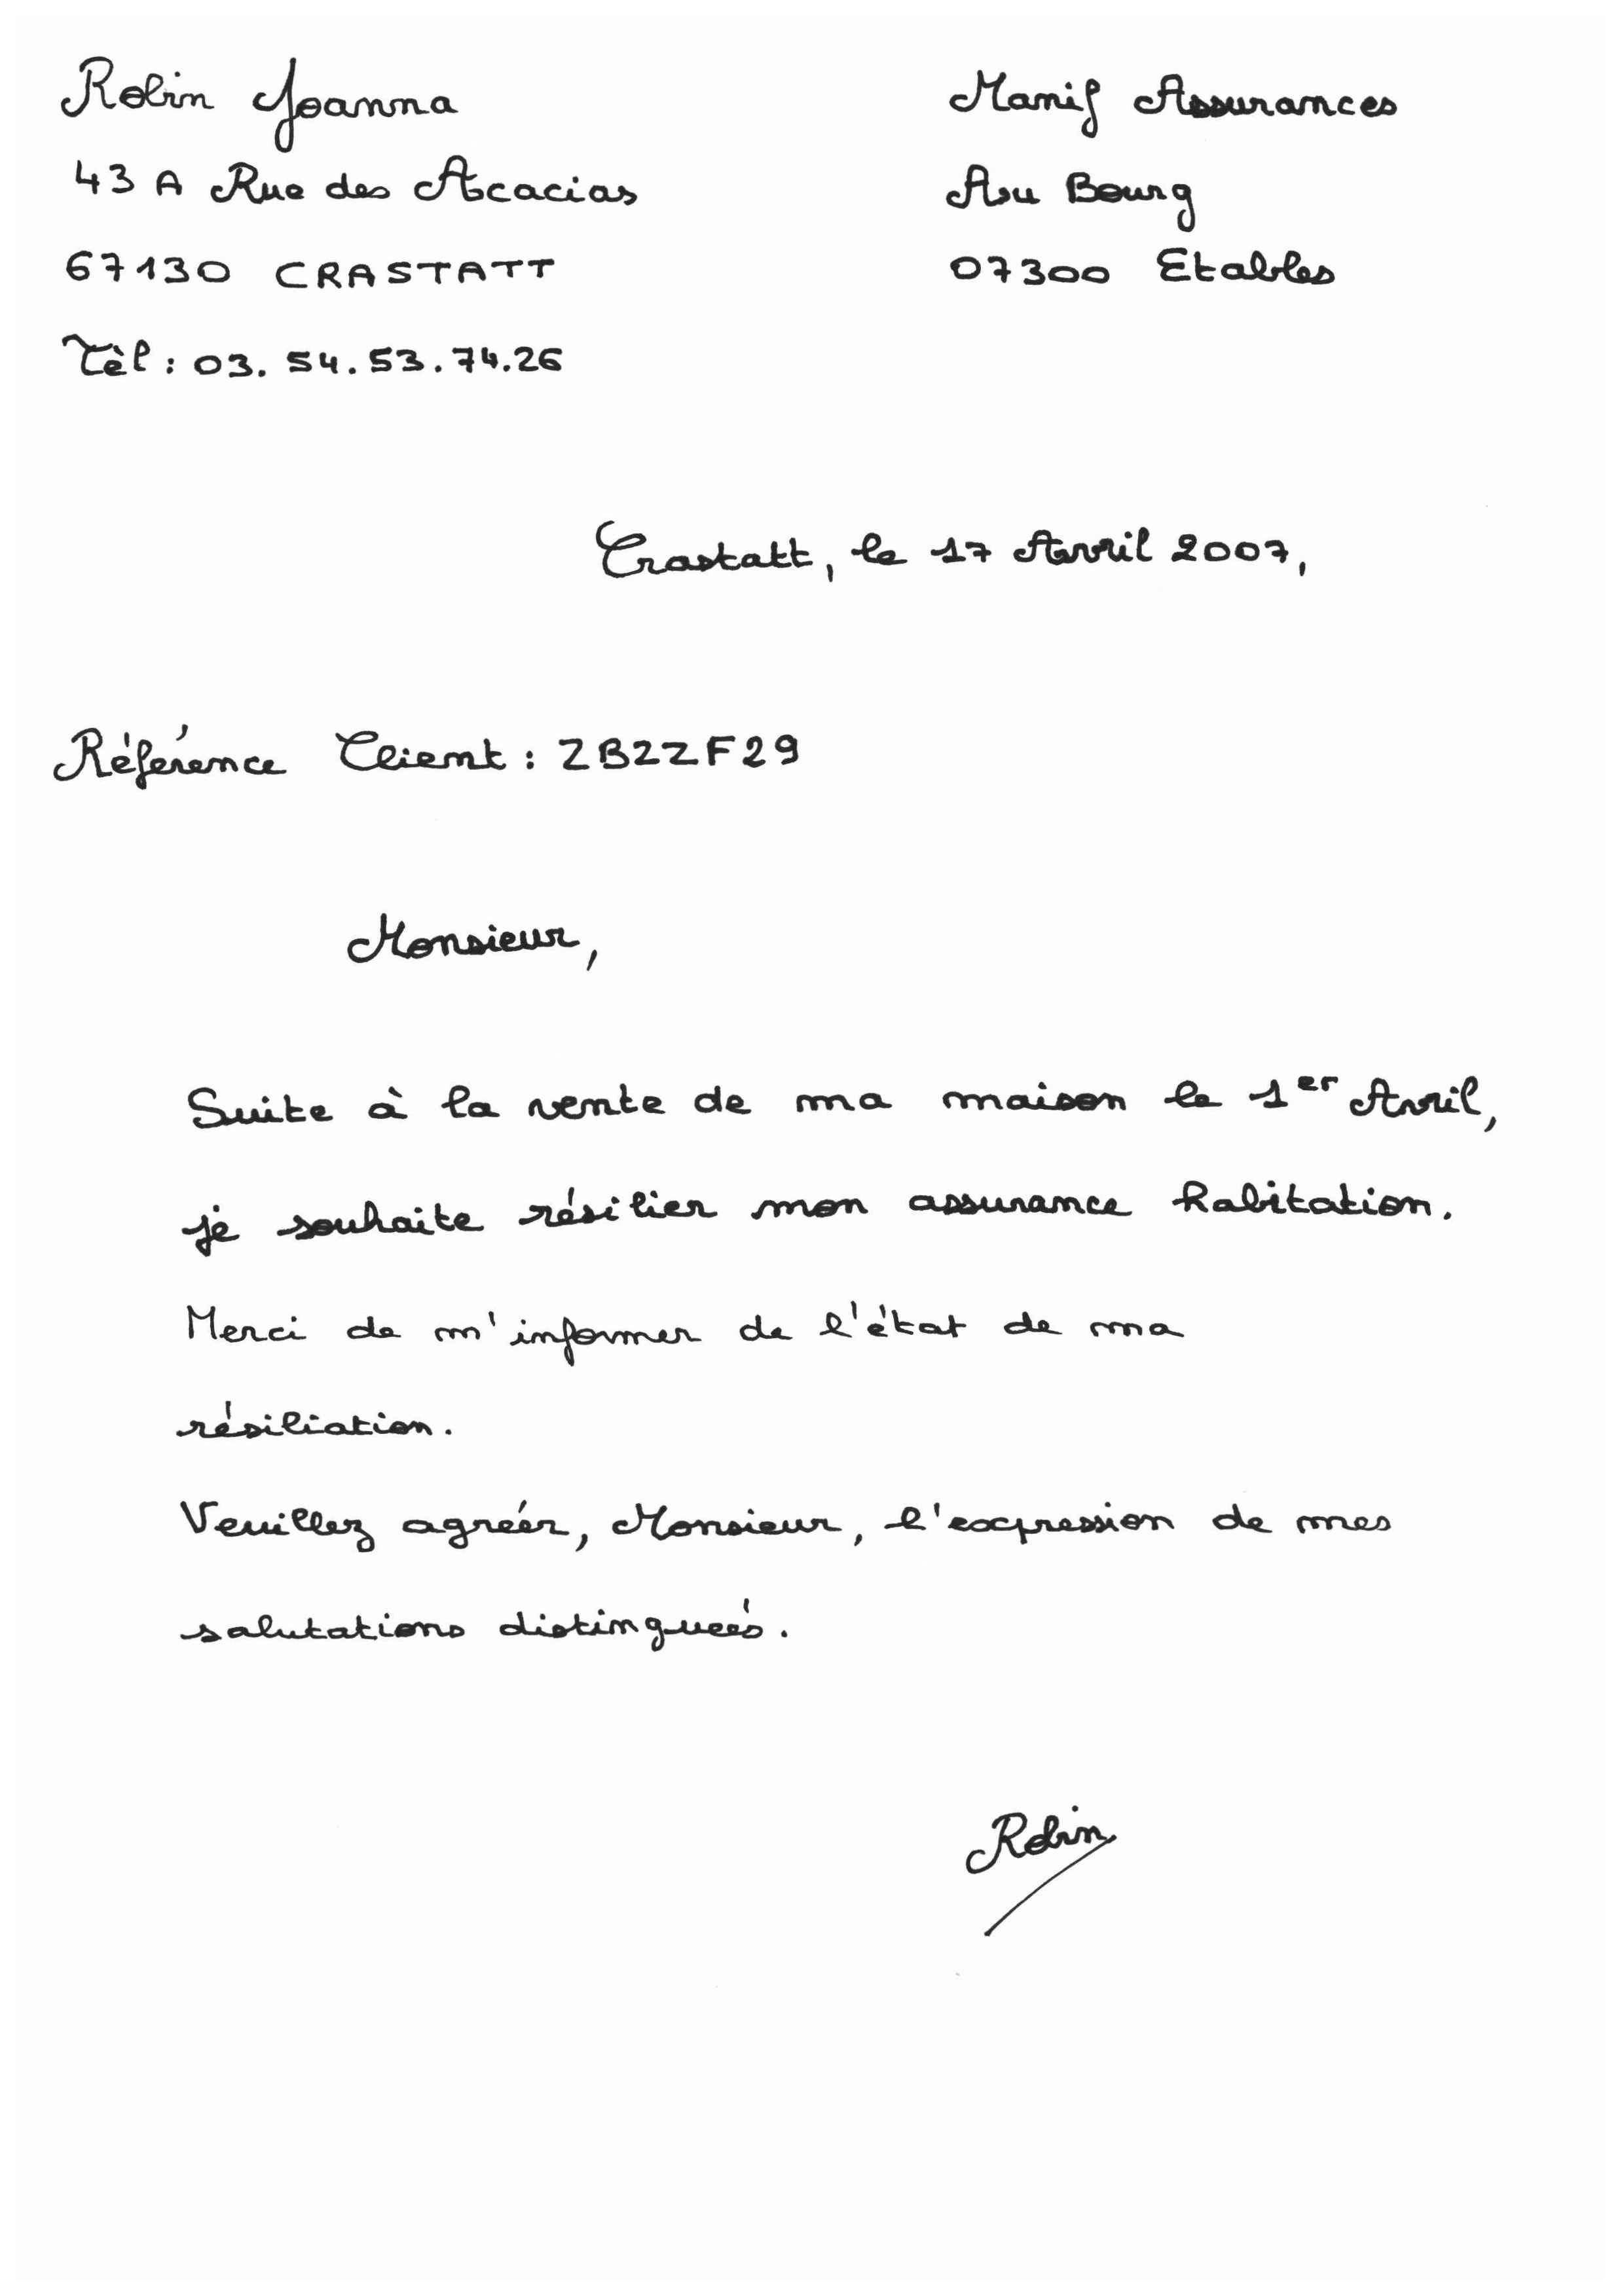 Robin Joanna
43 A Rue des Acacias
67130 CRASTATT
Tèl : 03. 54. 53. 74. 26
Manif Assurances
Asu Bourg
07300 Etables
Crastatt, le 17 Avril 2007,
Référence Client : ZB2ZF29
Monsieur,
Suite à la vente de ma maison le 1er Avril,
je souhaite résilier mon assurance habitation.
Merci de m'informer de l'état de ma
résiliation.
Veuillez agréer, Monsieur, l'expression de mes
salutations distinguées.
Robin